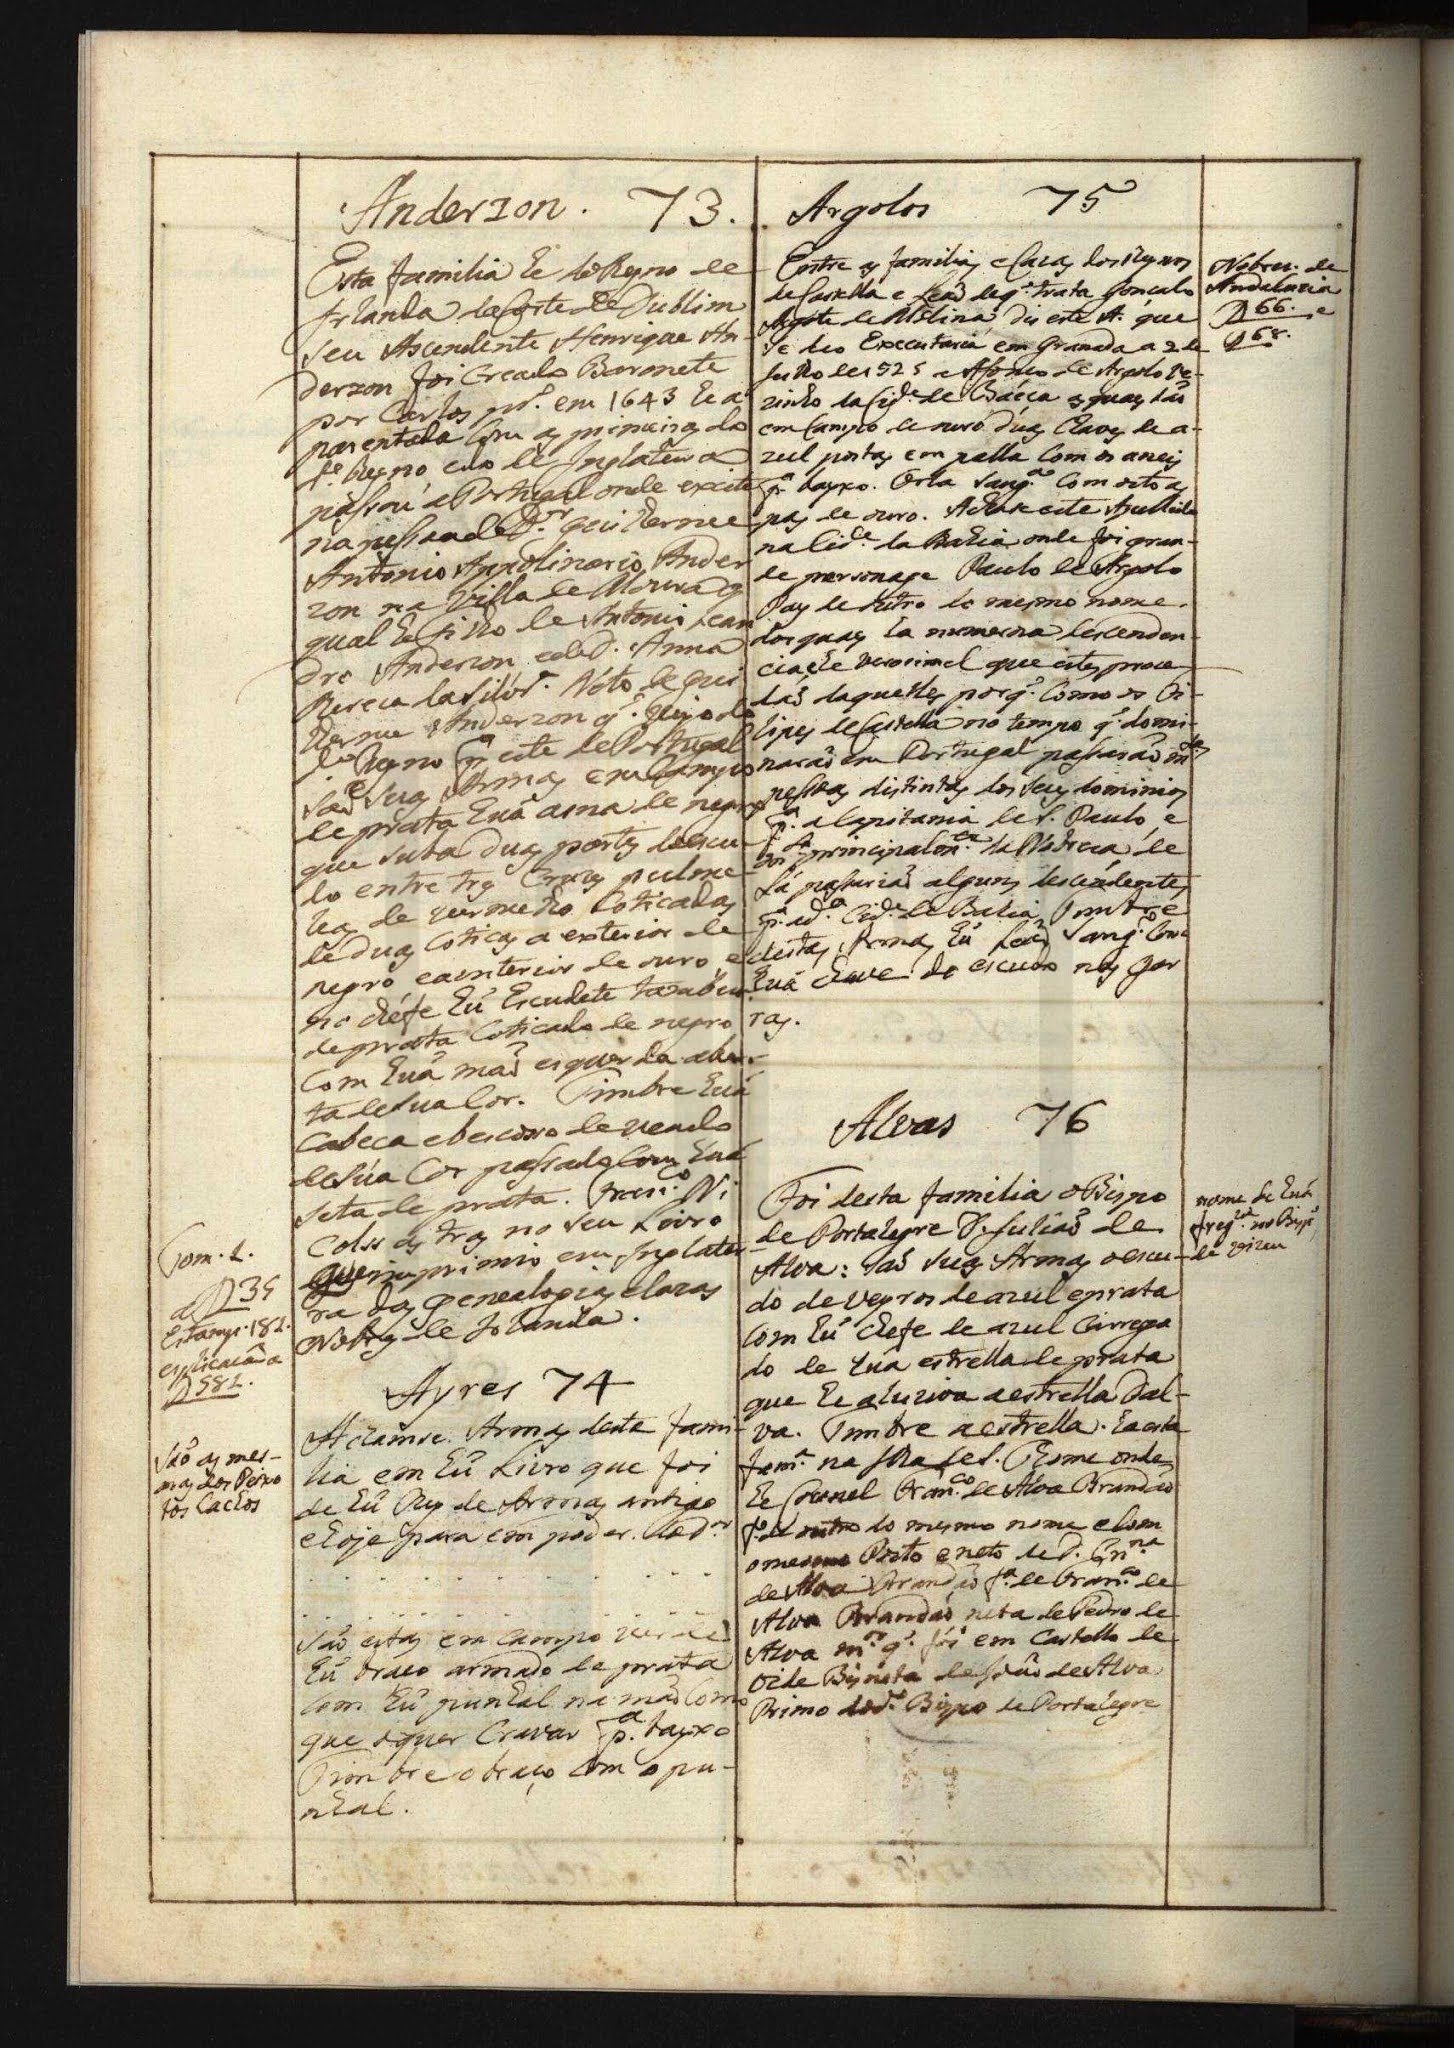 Anderzon. 73.
Esta familia he do Reyno de
Irlanda da Corte de Dublim
seu Ascendente Henrique An-
derzon foi Creado Baronete
por Carlos pr.º em 1643 he a-
parentada Com as primeiras do
d.º Reyno, e do de Inglaterra
passou a Portugal onde existe
na pessoa de D.or Guilherme
Antonio Appolinario Ander
zon na Villa de Moura o
qual he filho de Antonio Lean
dro Anderzon e de D. Anna
da Silv.ª Neto de Gui
lherme Anderzon q.
d.º Reyno p.ª este de Portugal
São suas Armas em Campo
de prata huã asna de negro
que suba duas partes do escu-
do entre tres Cruzes
de vermelho Coticadas
de duas Coticas a exterior de
negro e a interior de ouro e
no chéfe hũ Escudete tambem
de prata Coticado de negro
Com huã mão esquerda aber-
ta de sua Cor. Timbre huã
Cabeca e bescoso de veado
de sua Cor passado Com huã
seta de prata. Fran.co Ni
Colss as tras no seu Livro
que imprimio em Inglater
ra das genealogias e Casas
Nobres de Irlanda.
Tom. 1.
a p 35
Estamp. 181.
explicacão a
p 581.
Ayres 74
Achãmse Armas desta fami-
lia em hũ Livro que foi
de hũ Rey de Armas antigo
e hoje para em poder do D.or
. . . . . . . . . .
. . . . . . . . . .
São estas em Campo verde
hũ braco armado de prata
com hũ punhal na mão Como
que o quer Cravar p.ª bayxo
Timbre o braço Com o pu-
nhal.
São as mes-
mas dos Peixo
tos Cachos
Argolos 75
Entre as familias e Casas dos Reynos
de Castella e Leão de q. trata Goncalo
Argote de Molina, dis este A. que
se deo Executaria em Granada a 2 de
Julho de 1525 a Afonso de Argolo ve-
zinho da Cid.e de Báeca as quaes são
em Campo de ouro duas Chaves de a-
zul postas em palla Com os aneis
p.ª bayxo. Orla sang.ª Com oito as
pas de ouro. Achase este Apellido
na Cid.e da Bahia onde foi gran-
de personage Paulo de Argolo
Pay de outro do mesmo nome.
dos quaes ha numerosa descenden-
cia, e he verosimel que estes proce
dão daquelles porq. Como os Fi-
lipes de Castella no tempo q. domi-
narão em Portugal passarão m.tas
pessoas distintas dos seus dominios
p.ª a Capitania de S. Paulo, e
principalm.te da de
lá passarião alguns descendentes
p.ª a d.ª Cid.e da Bahia. Timbre
destas Armas hũ Leão Sang.º Com
huã Chave do escudo nas gar
ras.
Nobrez. de
Andaluzia
p 66. e
p 68.
Alvas 76
Foi desta familia o Bispo
de Portalegre D. Julião de
Alva: são suas Armas o escu-
do de veyros de azul e prata
Com hũ chefe de azul Carrega
do de huã estrella de prata
que he aluziva a estrella dal-
va. Timbre a estrella. ha esta
fam.ª na Ilha de S. Thome onde
he Coronel Fran.co de Alva Brandão
f.º de outro do mesmo nome e Com
o mesmo Posto e neto de D.
de Alva Brandão f.ª de Fran.co de
Alva Brandão neta de Pedro de
Alva m.or q. foi em Castello de
Vide Bisneta de João de Alva
Primo do d.º Bispo de Portalegre
nome de huã
freg.ia no Bisp.º
de Vizeu